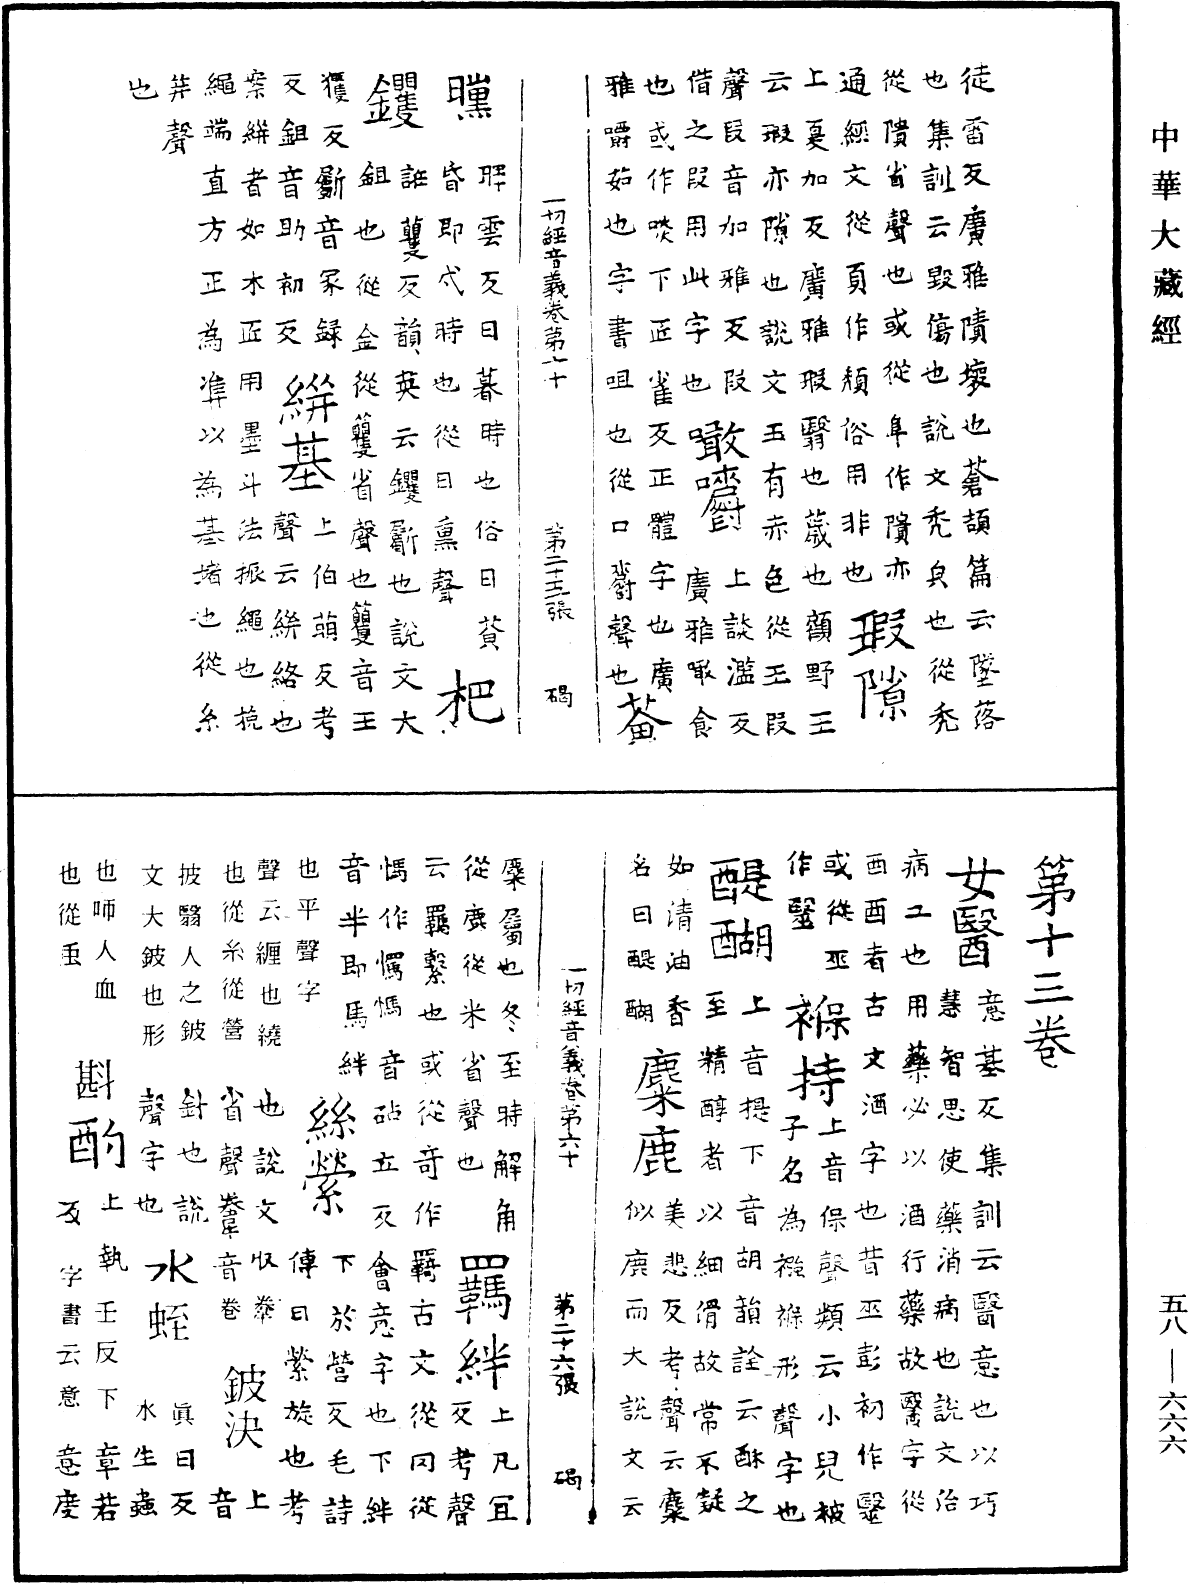 中華大藏經
徒雷反廣雅隤壞也蒼頡篇云墜落
也集訓云毀傷也說文禿皃也從禿
從隤省聲也或從阜作隤亦
通經文從頁作頹俗用非也 瑕隙
上夏加反廣雅瑕翳也薉也顧野王
云瑕亦隙也說文玉有赤色從王叚
聲叚音加雅反叚
借之叚用此字也 噉嚼 上談濫反
廣雅噉食
也或作啖下匠雀反正體字也廣
雅嚼茹也字書咀也從口爵聲也 黃
一切經音義卷第六十 第二十五張 碣
曛 暉雲反日暮時也俗曰黃
昏即戌時也從日熏聲 杷
钁 誑籰反韻英云钁斸也說文大
鉏也從金從籰省聲也籰音王
獲反斸音冢録
反鉏音助初反 絣基 上伯萌反考
聲云絣絡也
案絣者如木匠用墨斗法振繩也挽
繩端直方正為準以為基堵也從糸
并聲
也
第十三卷
女醫 意基反集訓云醫意也以巧
慧智思使藥消病也說文治
病工也用藥必以酒行藥故醫字從
酉酉者古文酒字也昔巫彭初作毉
或從巫
作毉 褓持 上音保聲類云小兒被
子名為襁褓形聲字也
醍醐 上音提下音胡韻詮云酥之
至精醇者以細滑故常不凝
如清油香
名曰醍醐 麋鹿 美悲反考聲云麋
似鹿而大說文云
一切經音義卷第六十 第二十六張 碣
麋屬也冬至時解角
從鹿從米省聲也 羈絆 上几宜
反考聲
云羈繫也或從奇作羇古文從罔從
音砧立反會意字也下絆
音半即馬絆
也平聲字 絲縈 下於營反毛詩
傳曰縈旋也考
聲云纏也繞也說文收
也從糸從營省聲 音卷 鈹決 上
音
披醫人之鈹針也說
文大鈹也形聲字也 水蛭 真日反
水生蟲
也咂人血
也從虫 斟酌 上執壬反下章若
反字書云意意度
五八—六六六